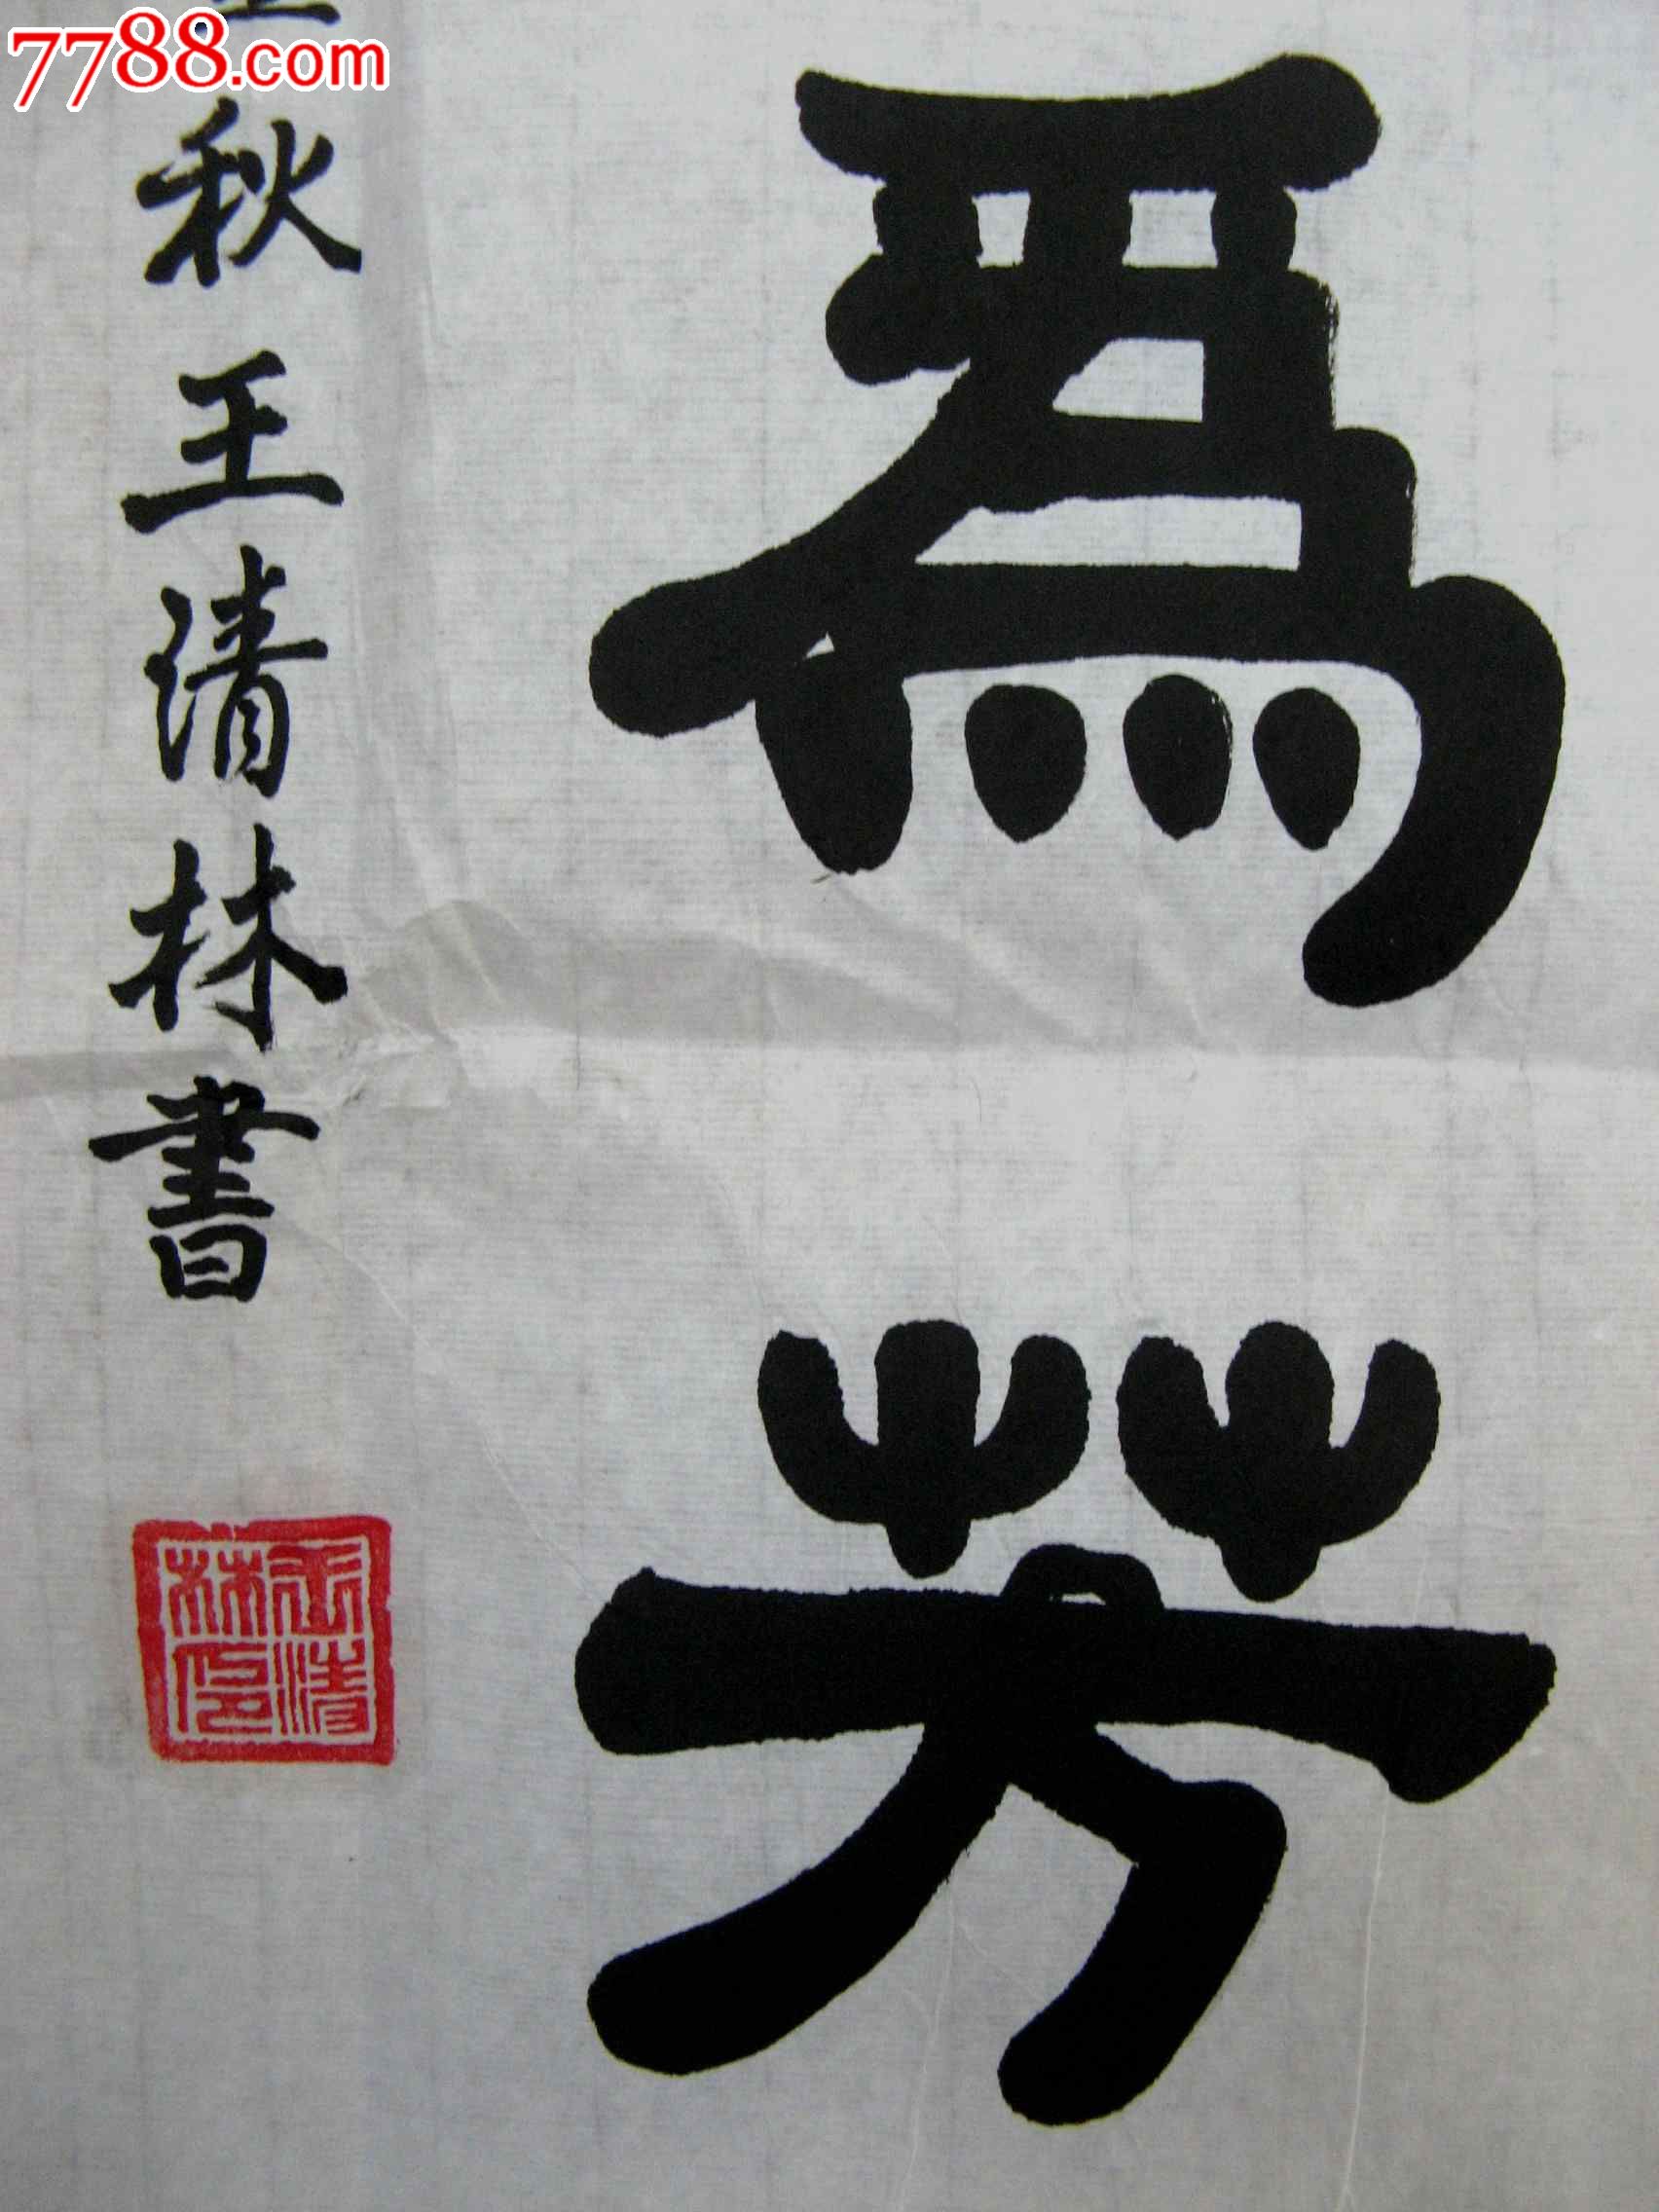 7788.com
為芳
秋王清林書
王清林印